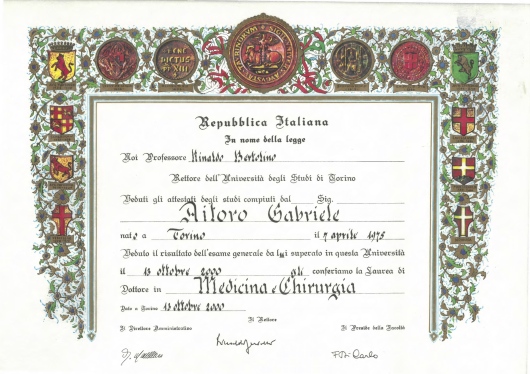 BENE
DICTUS
PP XIII
Repubblica Italiana
In nome della legge
Noi Professore Rinaldo Bertolino
Rettore dell'Università degli Studi di Torino
Veduti gli attestati degli studi compiuti dal Sig.
Aitoro Gabriele
nato a Torino il 7 aprile 1975
Veduto il risultato dell'esame generale da lui superato in questa Università
il 13 ottobre 2000 gli conferiamo la Laurea di
Dottore in Medicina e Chirurgia
Dato a Torino 13 ottobre 2000
Il Rettore
Il Direttore Amministrativo Il Preside della Facoltà